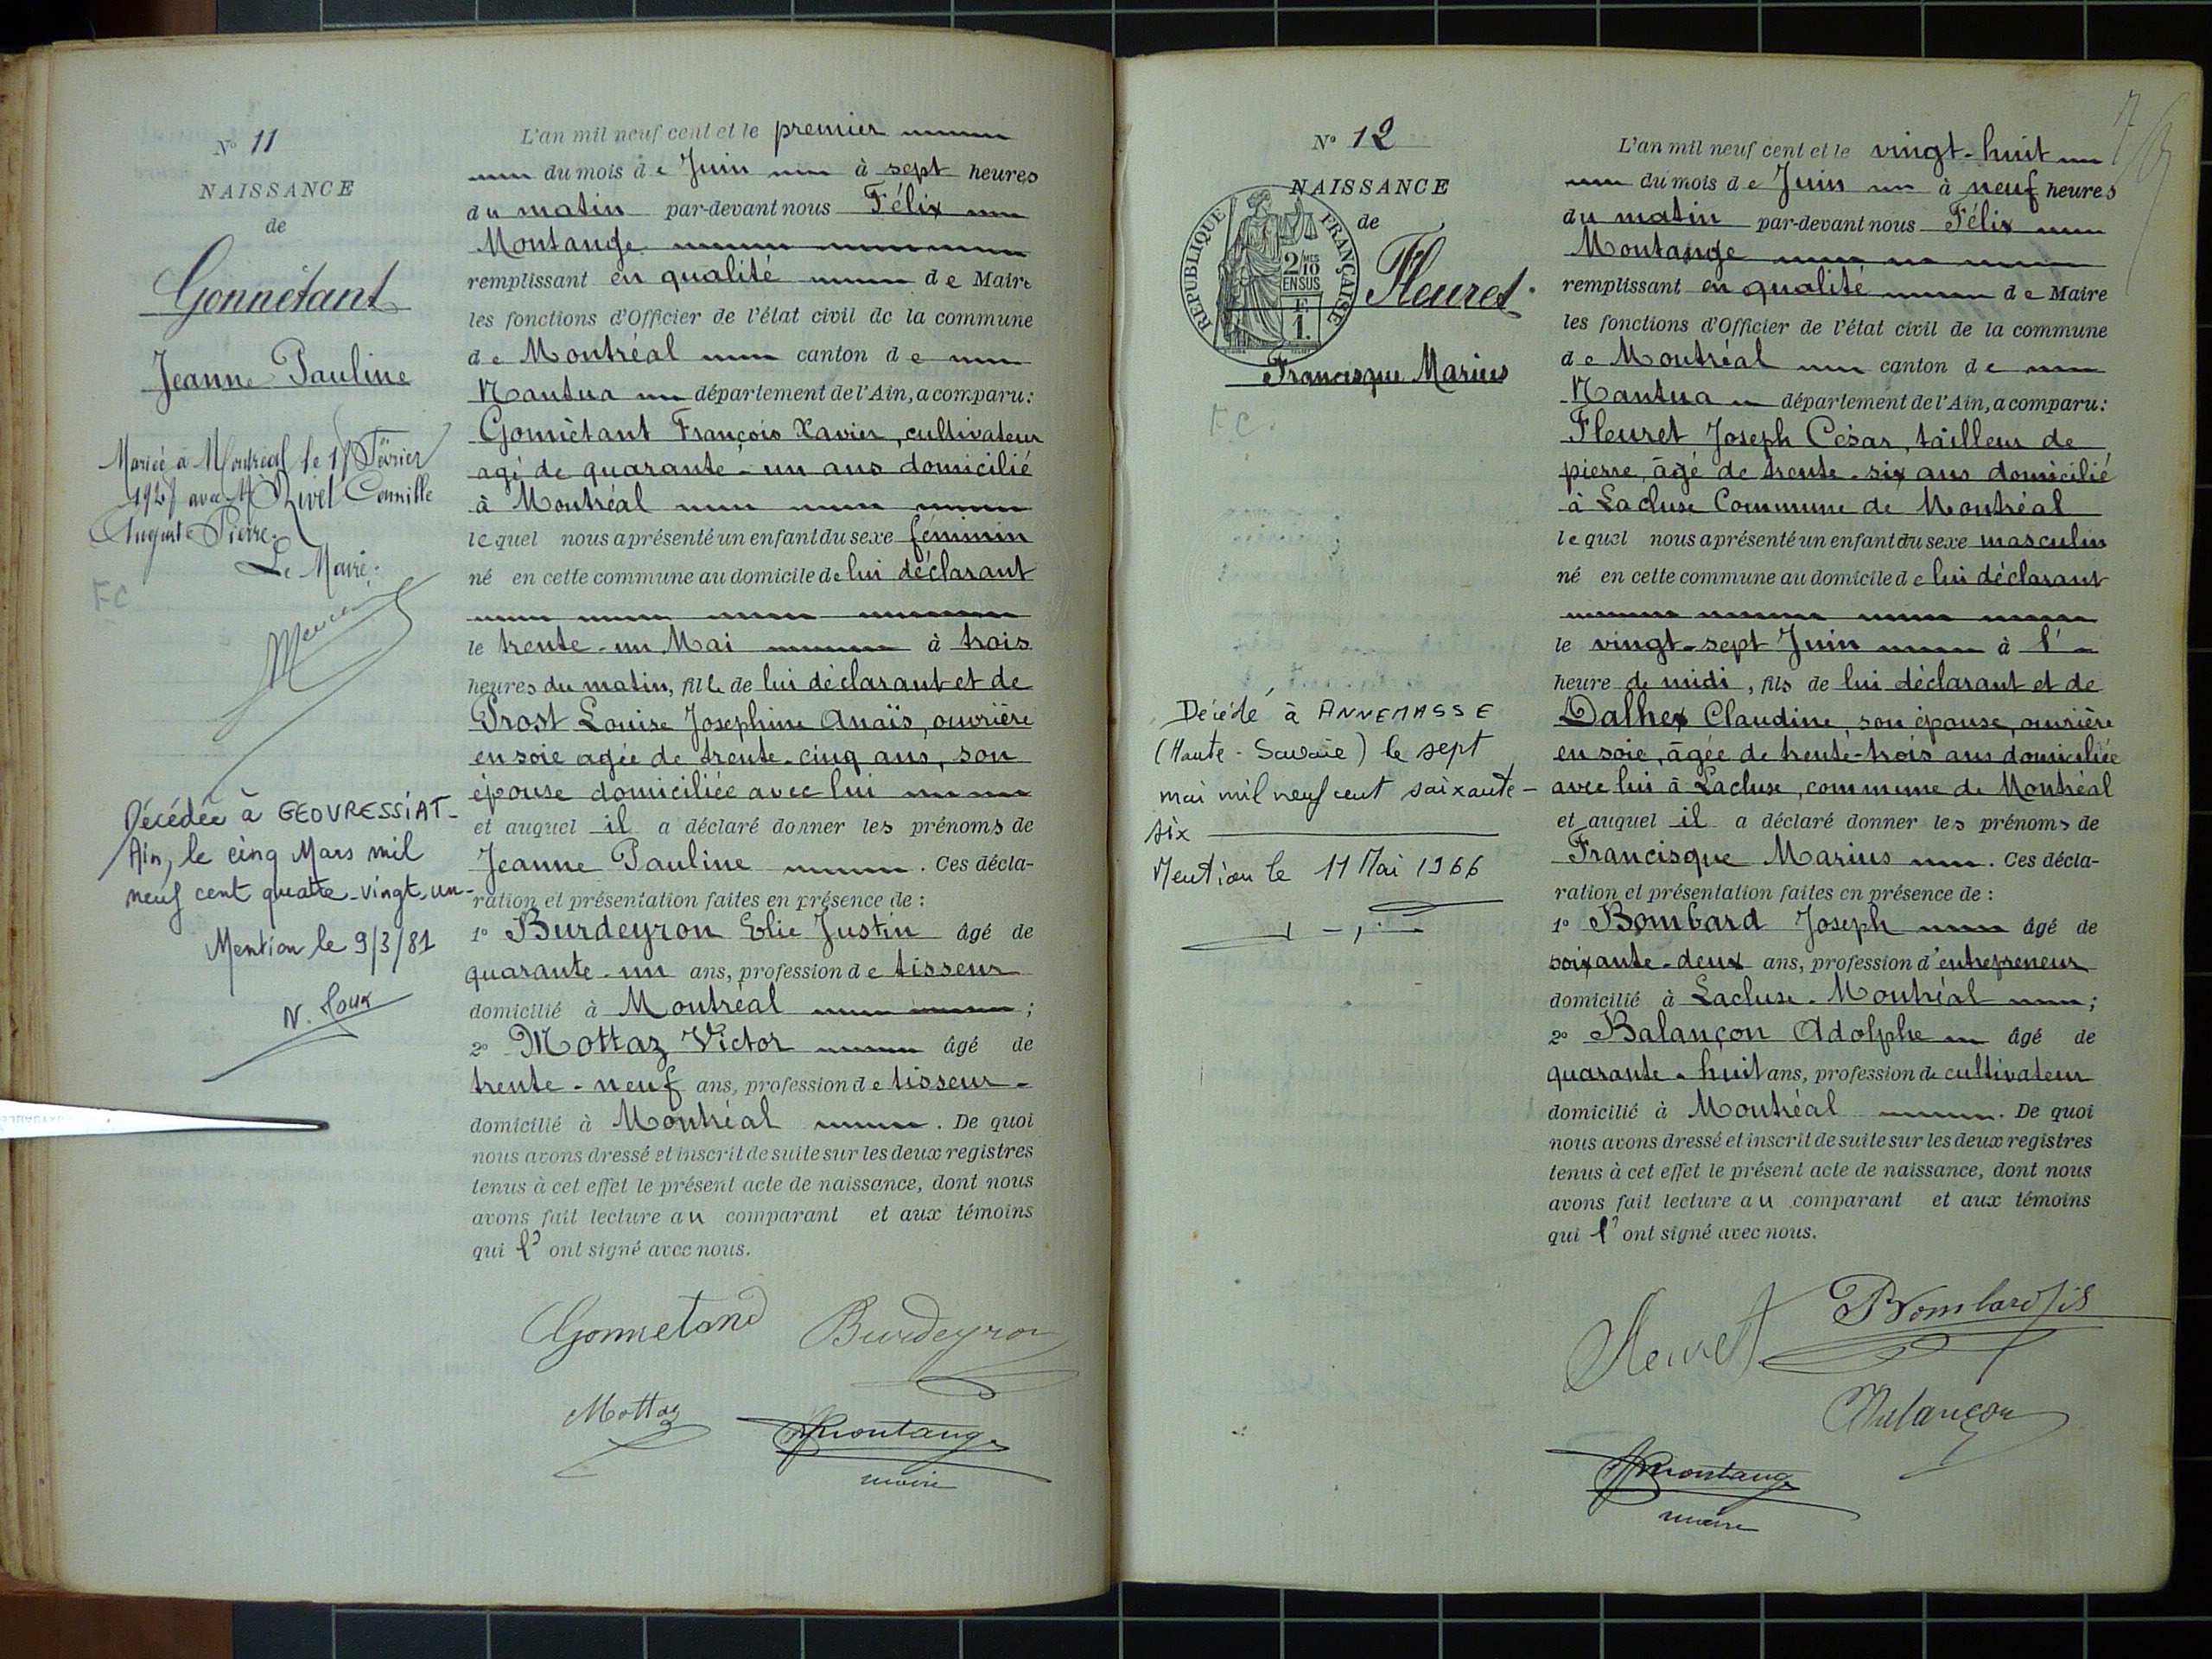 N° 11
NAISSANCE
de
Gonnétant
Jeanne Pauline
Mariée à Montréal le 17 Février
1927 avec Mr Rivet Camille
Auguste Pierre.
Le Maire.
FC
Décédée à GEOVRESSIAT-
Ain, le cinq Mars mil
neuf cent quatre-vingt-un-
Mention le 9/3/81
N. Roux
L'an mil neuf cent et le premier
du mois de Juin à sept heures
du matin par-devant nous Félix
Montange
remplissant en qualité de Maire
les fonctions d'Officier de l'état civil de la commune
de Montréal canton de
Nantua département de l'Ain, a comparu:
Gonnètant François Xavier, cultivateur
agé de quarante-un ans domicilié
à Montréal
lequel nous a présenté un enfant du sexe féminin
né en cette commune au domicile de lui déclarant
le trente-un Mai à trois
heures du matin, fille de lui déclarant et de
Prost Louise Josephine Anaïs, ouvrière
en soie agée de trente-cinq ans, son
épouse domiciliée avec lui
et auquel il a déclaré donner les prénoms de
Jeanne Pauline . Ces décla-
ration et présentation faites en présence de :
1° Burdeyron Elie Justin âgé de
quarante-un ans, profession de tisseur
domicilié à Montréal ;
2° Mottaz Victor âgé de
trente-neuf ans, profession de tisseur
domicilié à Montréal . De quoi
nous avons dressé et inscrit de suite sur les deux registres
tenus à cet effet le présent acte de naissance, dont nous
avons fait lecture au comparant et aux témoins
qui l' ont signé avec nous.
Gonnetand Burdeyron
Mottaz Montange
maire
N° 12
NAISSANCE
de
REPUBLIQUE FRANÇAISE
2/MES
10
EN SUS
F.
1.
Fleuret
Francisque Marius
FC.
Décédé à ANNEMASSE
(Haute-Savoie) le sept
mai mil neuf cent soixante-
six
Mention le 11 Mai 1966
L'an mil neuf cent et le vingt-huit
du mois de Juin à neuf heures
du matin par-devant nous Félix
Montange
remplissant en qualité de Maire
les fonctions d'Officier de l'état civil de la commune
de Montréal canton de
Nantua département de l'Ain, a comparu:
Fleuret Joseph César, tailleur de
pierre, âgé de trente-six ans domicilié
à Lacluse Commune de Montréal
lequel nous a présenté un enfant du sexe masculin
né en cette commune au domicile de lui déclarant
le vingt-sept Juin à l'
heure de midi, fils de lui déclarant et de
Dalhex Claudine, son épouse, ouvrière
en soie, âgée de trente-trois ans domiciliée
avec lui à Lacluse, commune de Montréal
et auquel il a déclaré donner les prénoms de
Francisque Marius . Ces décla-
ration et présentation faites en présence de :
1° Bombard Joseph âgé de
soixante-deux ans, profession d'entrepreneur
domicilié à Lacluse-Montréal ;
2° Balançon Adolphe âgé de
quarante-huit ans, profession de cultivateur
domicilié à Montréal . De quoi
nous avons dressé et inscrit de suite sur les deux registres
tenus à cet effet le présent acte de naissance, dont nous
avons fait lecture au comparant et aux témoins
qui l' ont signé avec nous.
Fleuret Bombard fils
Balançon
Montange
maire